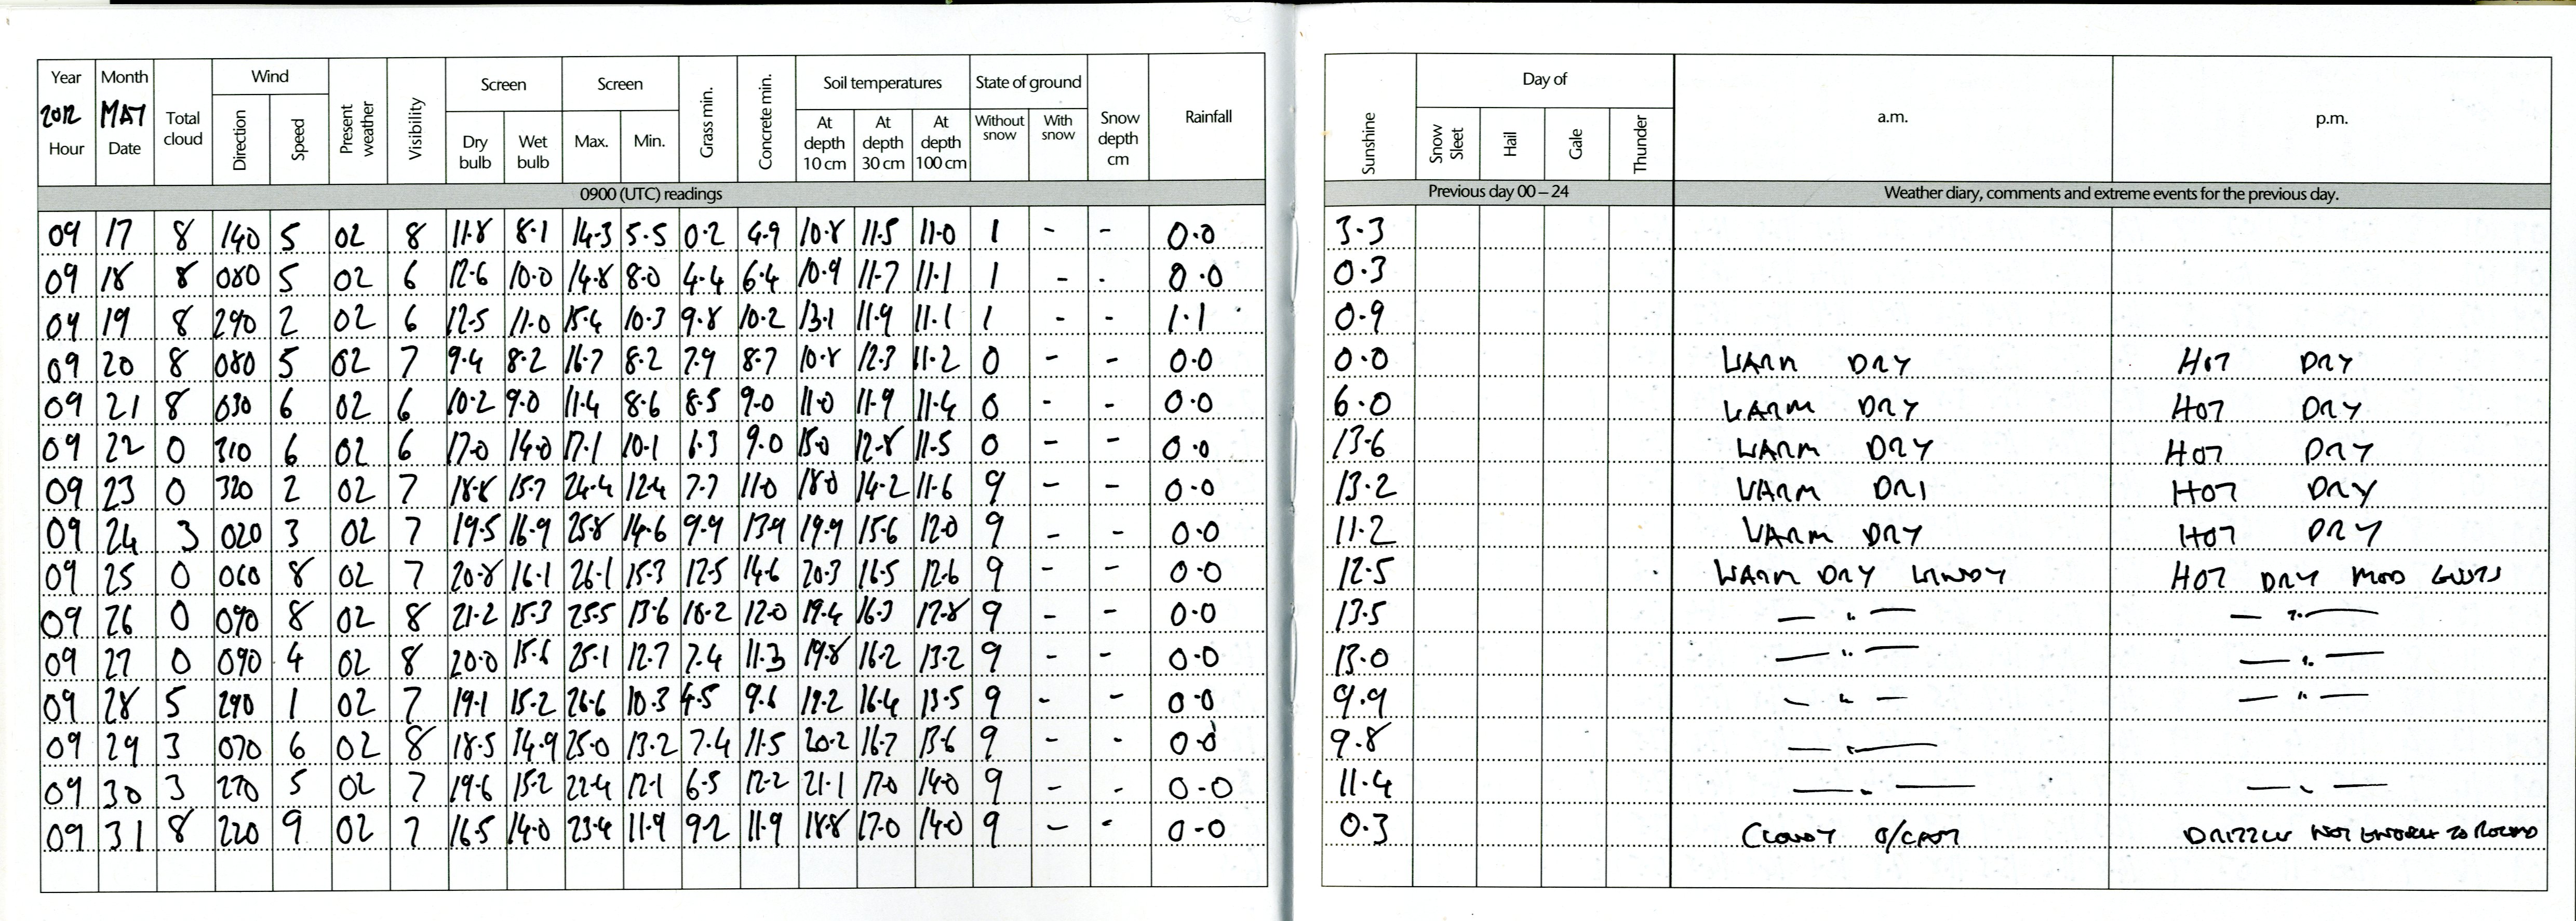 Year Month Total cloud Wind Present weather Visibility Screen Screen Grass min. Concrete min. Soil temperatures State of ground Snow depth cm Rainfall Sunshine Day of a.m. p.m.
2012 MAY
Hour Date Direction Speed Dry bulb Wet bulb Max. Min. At depth 10 cm At depth 30 cm At depth 100 cm Without snow With snow Snow Sleet Hail Gale Thunder
0900 (UTC) readings Previous day 00 – 24 Weather diary, comments and extreme events for the previous day.
09 17 8 140 5 02 8 11.8 8.1 14.3 5.5 0.2 4.9 10.8 11.5 11.0 1 - - 0.0 3.3
09 18 8 080 5 02 6 12.6 10.0 14.8 8.0 4.4 6.4 10.9 11.7 11.1 1 - - 0.0 0.3
09 19 8 290 2 02 6 12.5 11.0 15.4 10.3 9.8 10.2 13.1 11.9 11.1 1 - - 1.1 0.9
09 20 8 080 5 02 7 9.4 8.2 16.7 8.2 7.9 8.7 10.8 12.3 11.2 0 - - 0.0 0.0 WARM DRY HOT DRY
09 21 8 030 6 02 6 10.2 9.0 11.4 8.6 8.5 9.0 11.0 11.9 11.4 0 - - 0.0 6.0 WARM DRY HOT DRY
09 22 0 310 6 02 6 17.0 14.0 17.1 10.1 6.3 9.0 15.0 12.8 11.5 0 - - 0.0 13.6 WARM DRY HOT DRY
09 23 0 320 2 02 7 18.8 15.7 24.4 12.4 7.7 11.0 18.0 14.2 11.6 9 - - 0.0 13.2 WARM DRY HOT DRY
09 24 3 020 3 02 7 19.5 16.9 25.8 14.6 9.9 13.9 19.9 15.6 12.0 9 - - 0.0 11.2 WARM DRY HOT DRY
09 25 0 060 8 02 7 20.8 16.1 26.1 15.3 12.5 14.6 20.3 16.5 12.6 9 - - 0.0 12.5 WARM DRY WINDY HOT DRY MOD GUSTS
09 26 0 090 8 02 8 21.2 15.3 25.5 13.6 10.2 12.0 19.4 16.3 12.8 9 - - 0.0 13.5 — " — — " —
09 27 0 090 4 02 8 20.0 15.6 25.1 12.7 7.4 11.3 19.8 16.2 13.2 9 - - 0.0 13.0 — " — — " —
09 28 5 290 1 02 7 19.1 15.2 26.6 10.3 4.5 9.6 19.2 16.4 13.5 9 - - 0.0 9.9 — " — — " —
09 29 3 070 6 02 8 18.5 14.9 25.0 13.2 7.4 11.5 20.2 16.7 13.6 9 - - 0.0 9.8 — " —
09 30 3 270 5 02 7 19.6 15.2 22.4 12.1 6.5 12.2 21.1 17.0 14.0 9 - - 0.0 11.4 — " — — " —
09 31 8 220 9 02 7 16.5 14.0 23.4 11.9 9.2 11.9 18.8 17.0 14.0 9 - - 0.0 0.3 CLOUDY O/CAST DRIZZLE NOT ENOUGH TO RECORD